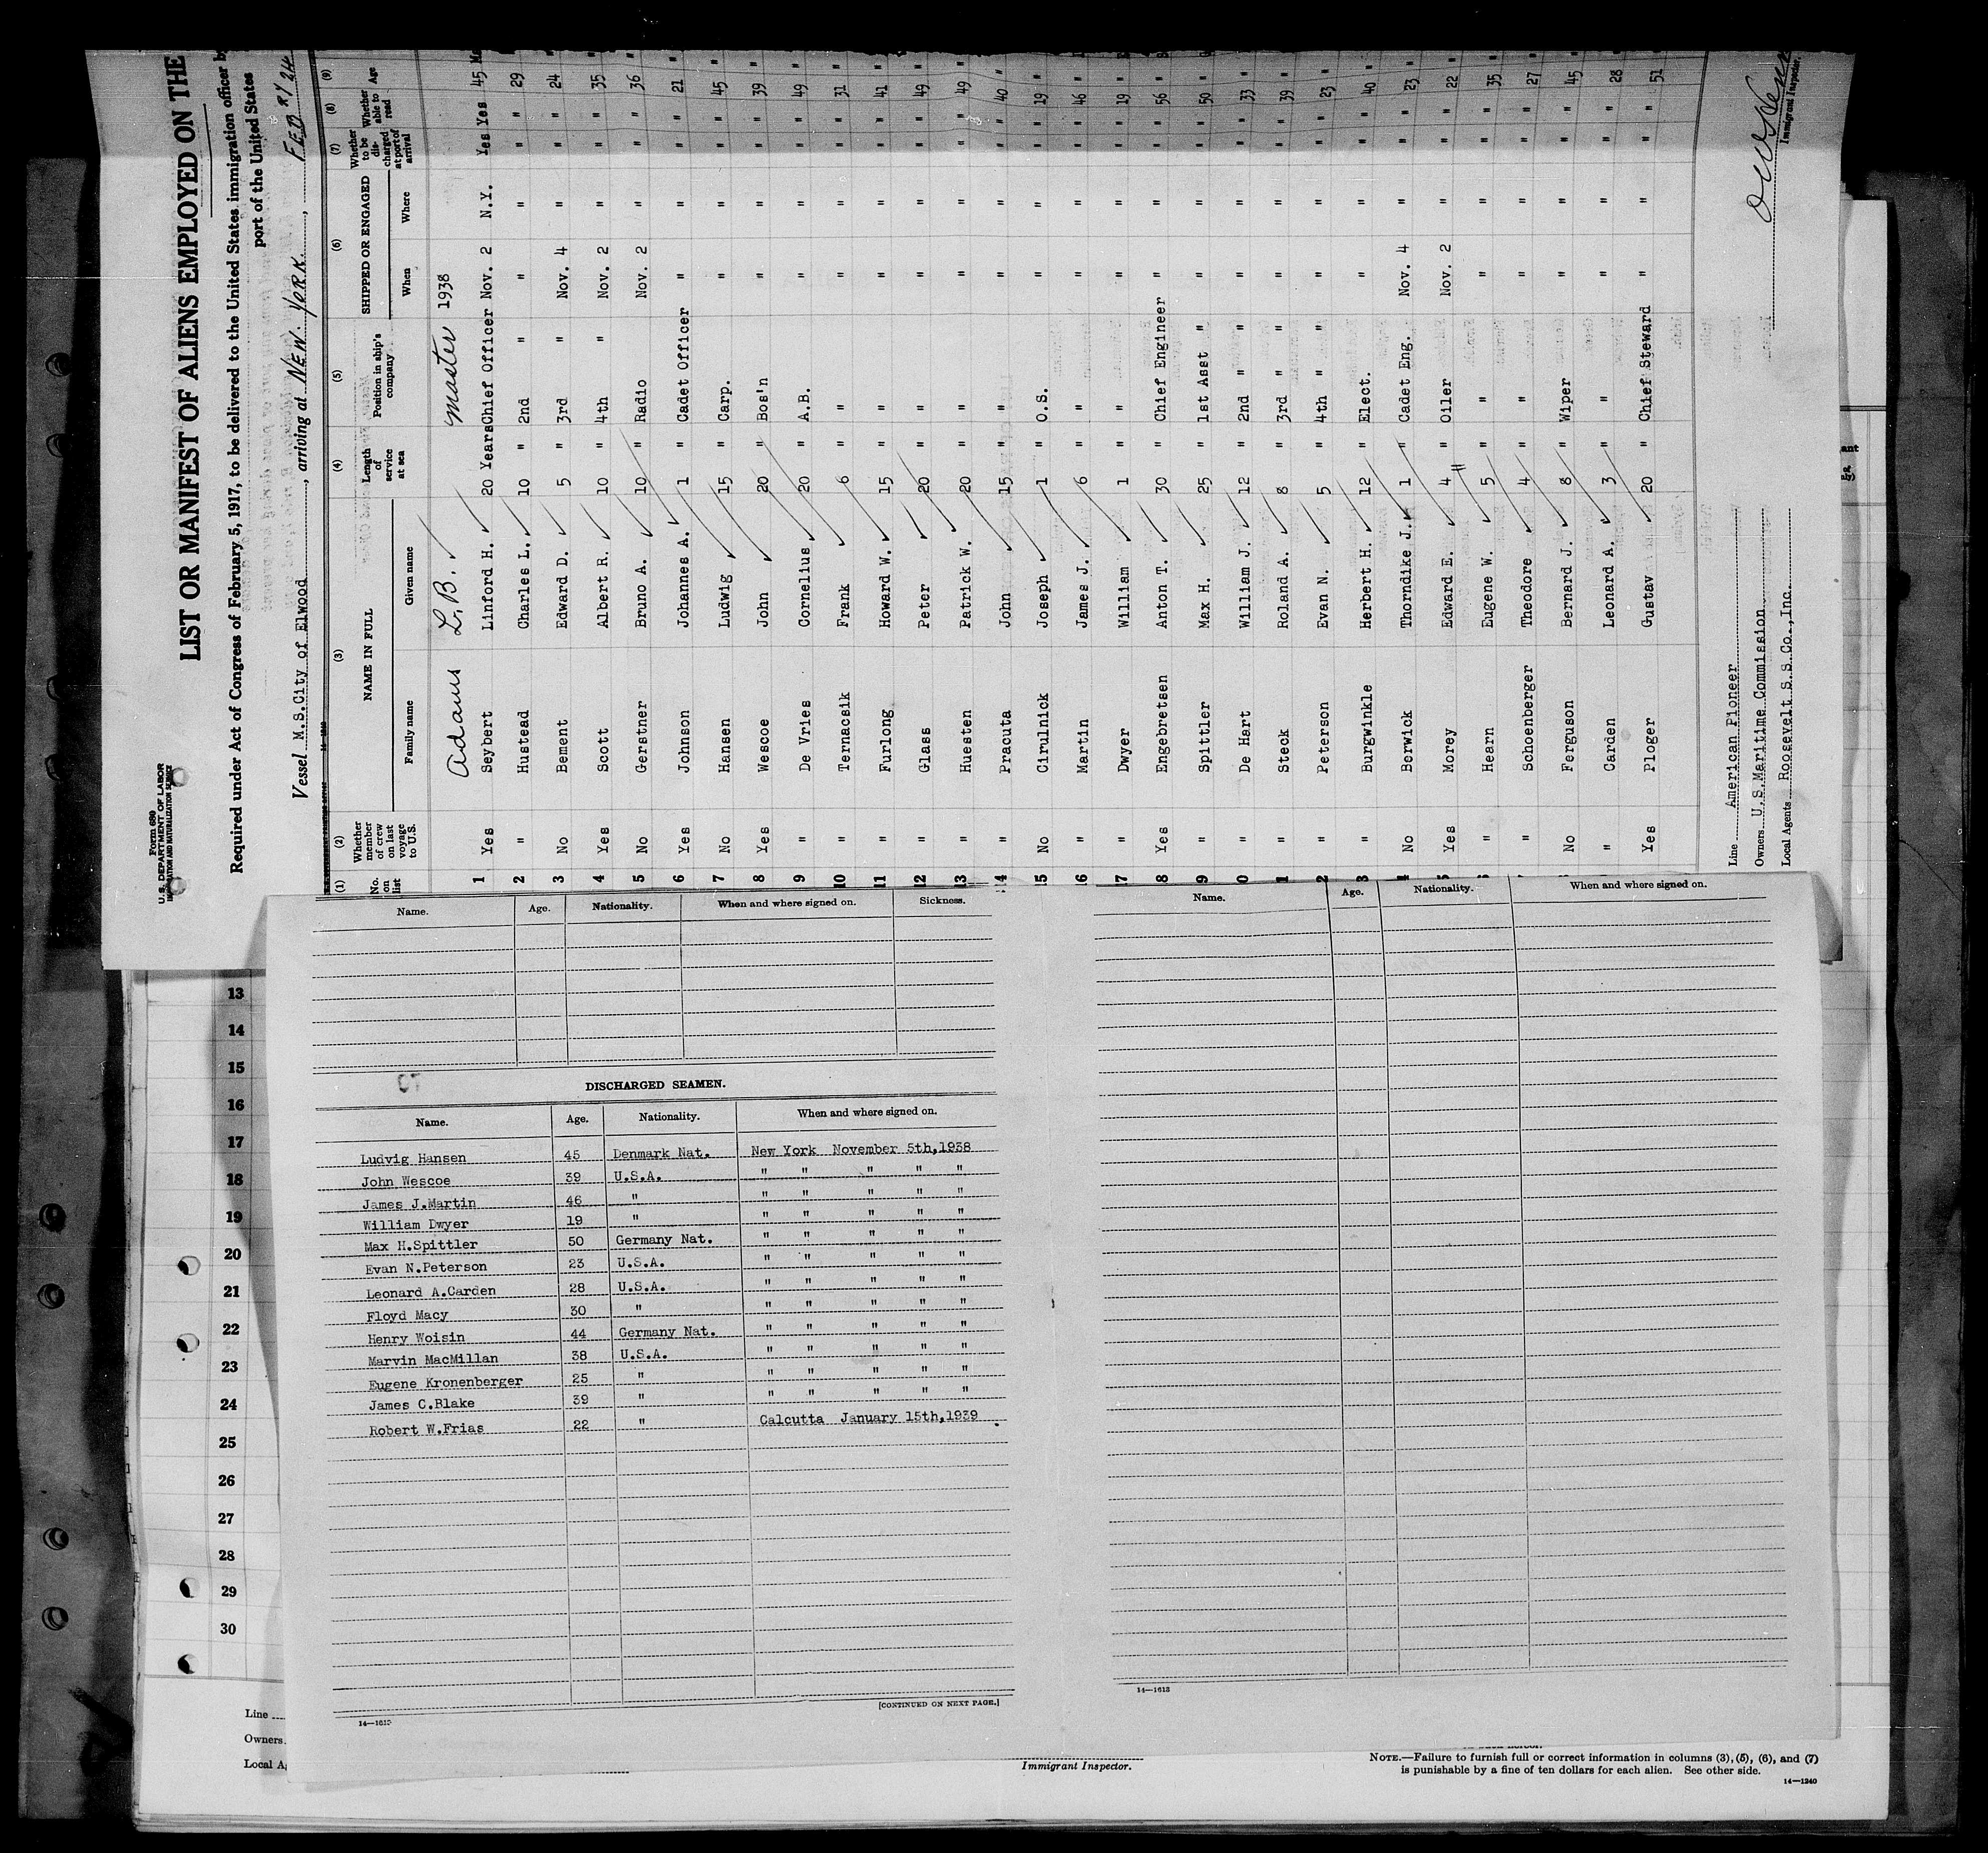 Form 680
U.S. DEPARTMENT OF LABOR
IMMIGRATION AND NATURALIZATION SERVICE
LIST OR MANIFEST OF ALIENS EMPLOYED ON THE
Required under Act of Congress of February 5, 1917, to be delivered to the United States immigration officer by
port of the United States
Vessel M.S.City of Elwood, arriving at NEW YORK,
(1) (2) (3) (4) (5) (6) (7) (8) (9)
No. on list Whether member of crew on last voyage to U.S. NAME IN FULL Family name Given name Length of service at sea Position in ship's company SHIPPED OR ENGAGED When Where Whether to be discharged at port of arrival Whether able to read Age
Adams L.B. master 1938
1 Yes Seybert Linford H. 20 Years Chief Officer Nov. 2 N.Y. Yes Yes 45
2 " Hustead Charles L. 10 " 2nd " " " " " 29
3 No Bement Edward D. 5 " 3rd " Nov. 4 " " " 24
4 Yes Scott Albert R. 10 " 4th " Nov. 2 " " " 35
5 No Gerstner Bruno A. 10 " Radio Nov. 2 " " " 36
6 Yes Johnson Johannes A. 1 " Cadet Officer " " " " 21
7 No Hansen Ludwig 15 " Carp. " " " " 45
8 Yes Wescoe John 20 " Bos'n " " " " 39
9 " De Vries Cornelius 20 " A.B. " " " " 49
10 " Ternacsik Frank 6 " " " " " " 31
11 " Furlong Howard W. 15 " " " " " " 41
12 " Glass Peter 20 " " " " " " 49
13 " Huesten Patrick W. 20 " " " " " " 49
14 " Pracuta John 15 " " " " " " 40
15 No Cirulnick Joseph 1 " O.S. " " " " 19
16 " Martin James J. 6 " " " " " " 46
17 " Dwyer William 1 " " " " " " 19
8 Yes Engebretsen Anton T. 30 " Chief Engineer " " " " 56
9 " Spittler Max H. 25 " 1st Asst " " " " " 50
0 " De Hart William J. 12 " 2nd " " " " " " 33
1 " Steck Roland A. 8 " 3rd " " " " " " 39
2 " Peterson Evan N. 5 " 4th " " " " " " 23
3 " Burgwinkle Herbert H. 12 " Elect. " " " " 40
4 No Berwick Thorndike J. 1 " Cadet Eng. Nov. 4 " " " 23
5 Yes Morey Edward E. 4 " Oiler Nov. 2 " " " 22
" Hearn Eugene W. 5 " " " " " " 35
" Schoenberger Theodore 4 " " " " " " 27
No Ferguson Bernard J. 8 " Wiper " " " " 45
" Carden Leonard A. 3 " " " " " " 28
Yes Ploger Gustav 20 " Chief Steward " " " " 51
Line American Pioneer
Owners U.S.Maritime Commission
Local Agents Roosevelt S.S.Co.,Inc.
Immigrant Inspector.
Name. Age. Nationality. When and where signed on. Sickness.
DISCHARGED SEAMEN.
Name. Age. Nationality. When and where signed on.
Ludvig Hansen 45 Denmark Nat. New York November 5th,1938
John Wescoe 39 U.S.A. " " " " "
James J.Martin 46 " " " " " "
William Dwyer 19 " " " " " "
Max H.Spittler 50 Germany Nat. " " " " "
Evan N.Peterson 23 U.S.A. " " " " "
Leonard A.Carden 28 U.S.A. " " " " "
Floyd Macy 30 " " " " " "
Henry Woisin 44 Germany Nat. " " " " "
Marvin MacMillan 38 U.S.A. " " " " "
Eugene Kronenberger 25 " " " " " "
James C.Blake 39 " " " " " "
Robert W.Frias 22 " Calcutta January 15th,1939
[CONTINUED ON NEXT PAGE.]
Name. Age. Nationality. When and where signed on.
14—1613
13
14
15
16
17
18
19
20
21
22
23
24
25
26
27
28
29
30
Line
Owners
Local A
Immigrant Inspector.
NOTE.—Failure to furnish full or correct information in columns (3), (5), (6), and (7)
is punishable by a fine of ten dollars for each alien. See other side.
14—1240